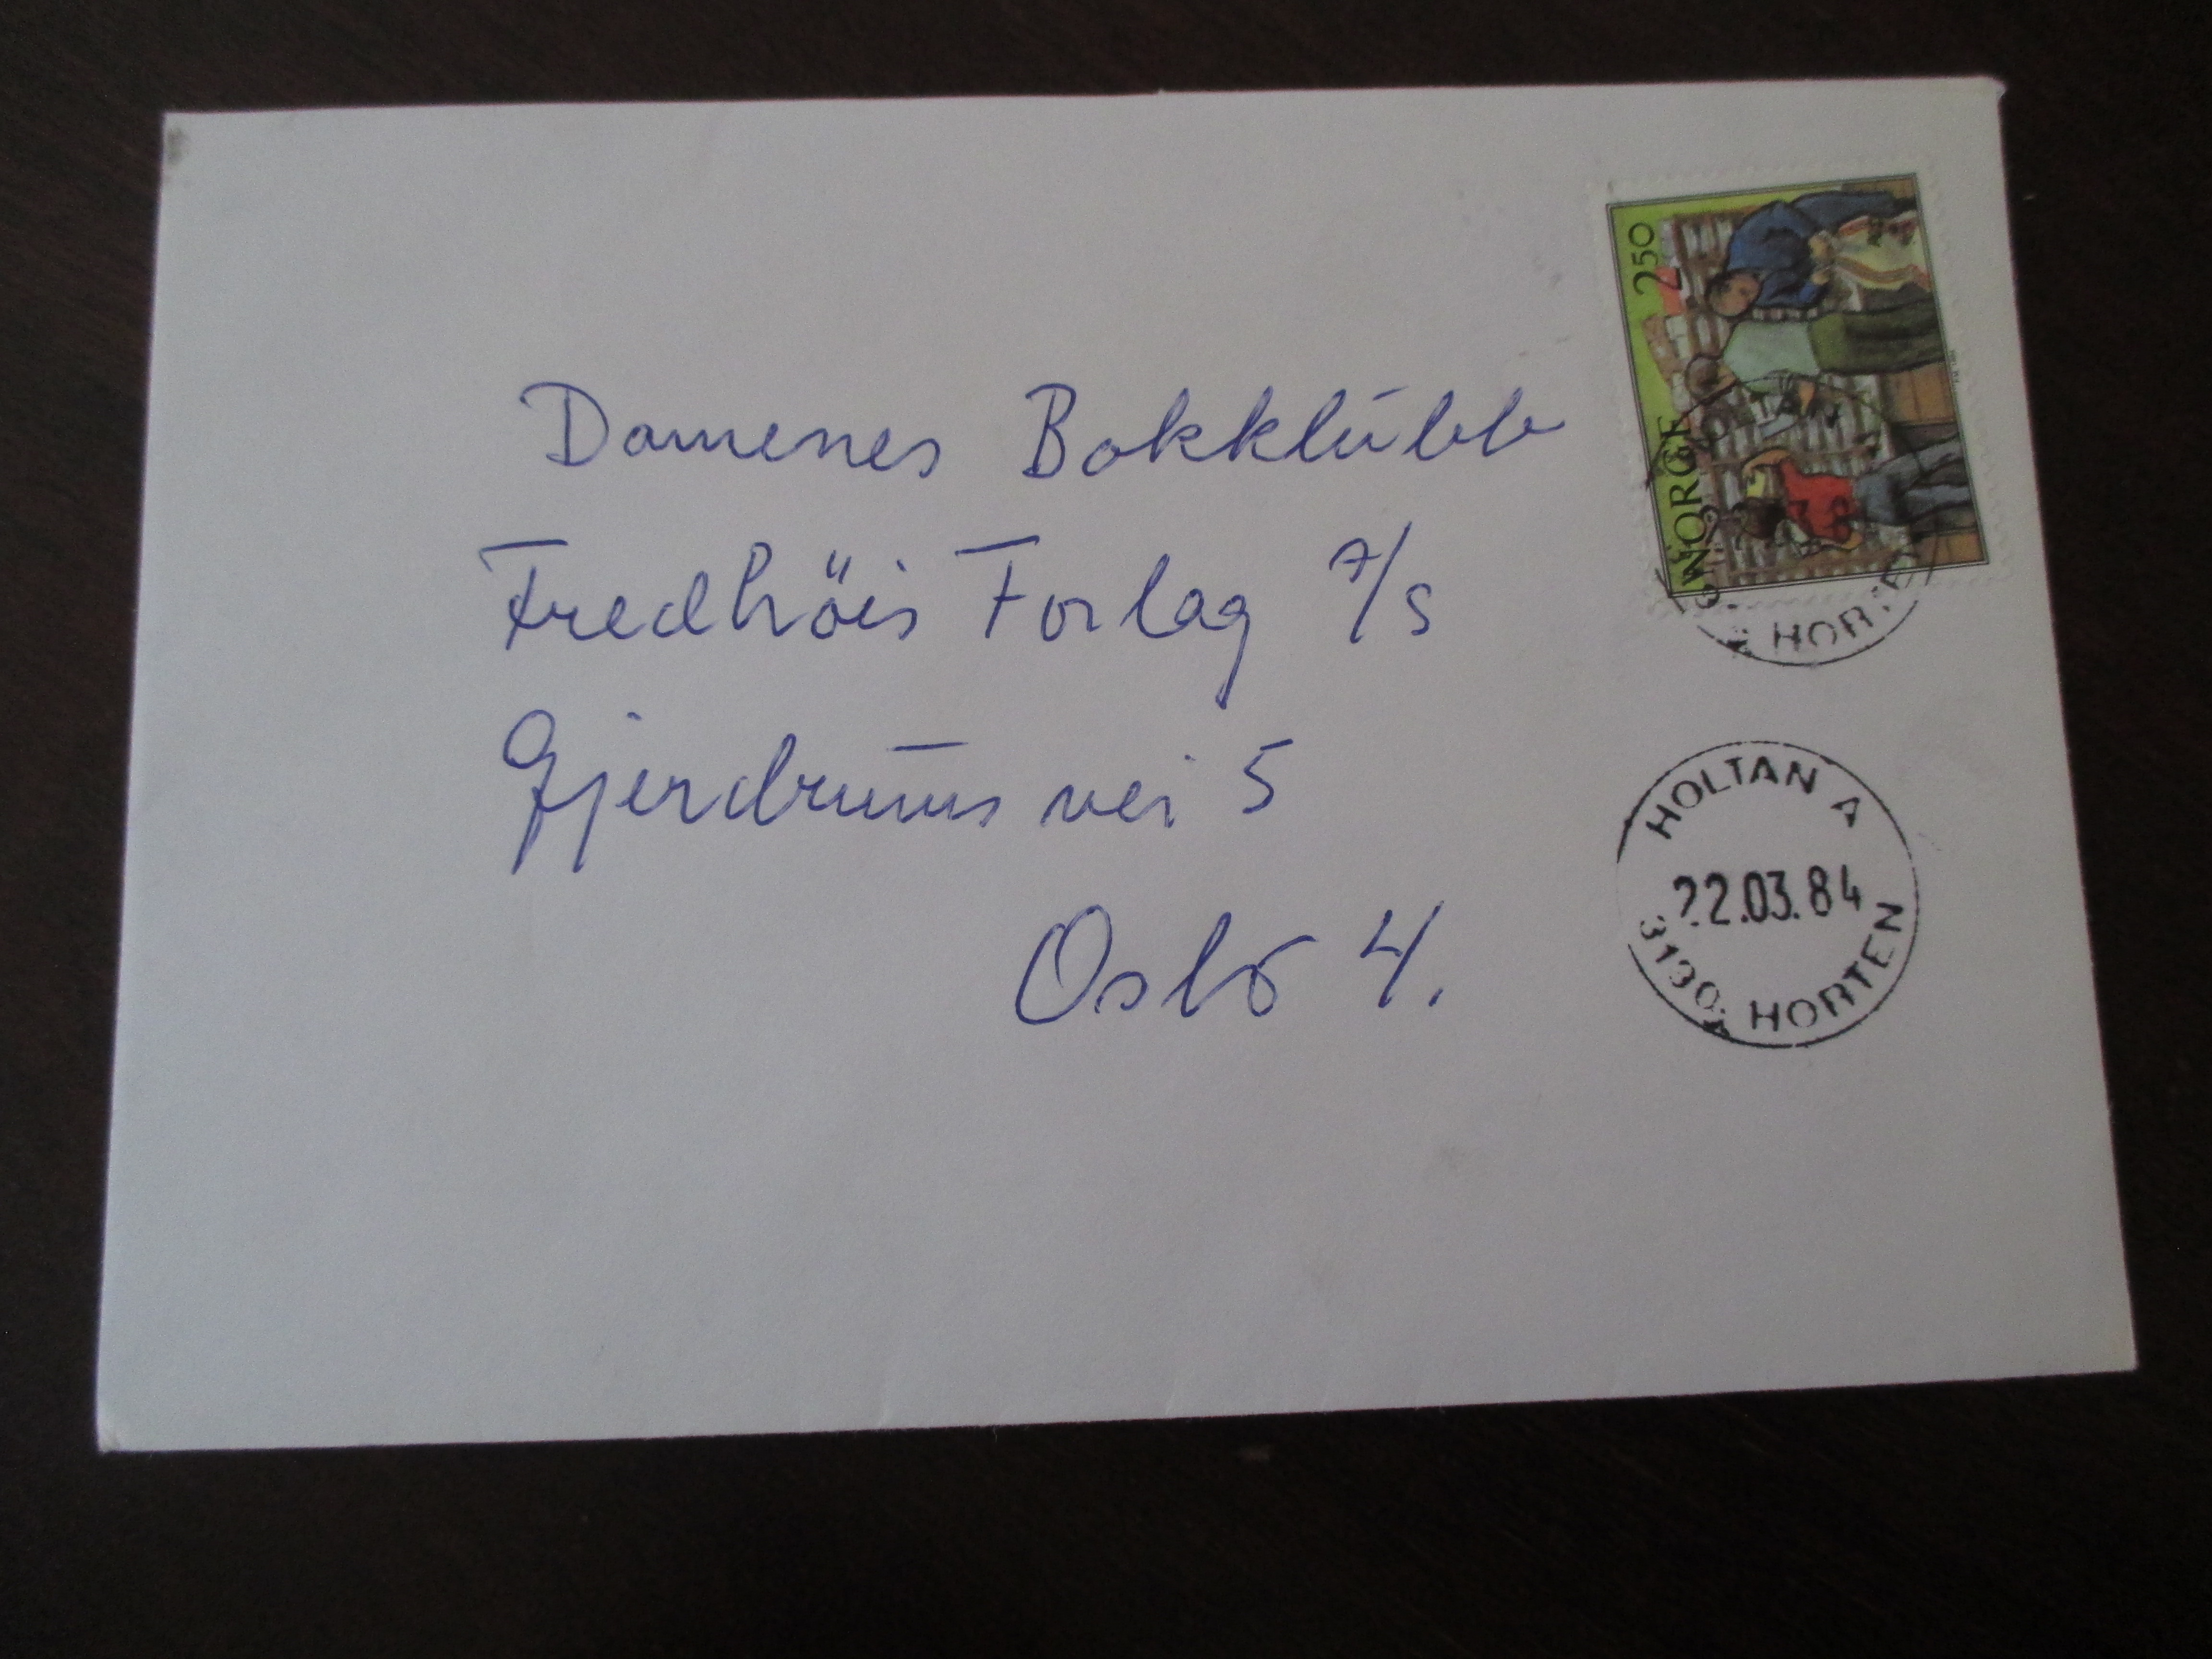 Damenes Bokklubb
Fredhöis Forlag A/S
Gjerdrums vei 5
Oslo 4.
NORGE 250
HOLTAN A
22.03.84
3190 HORTEN